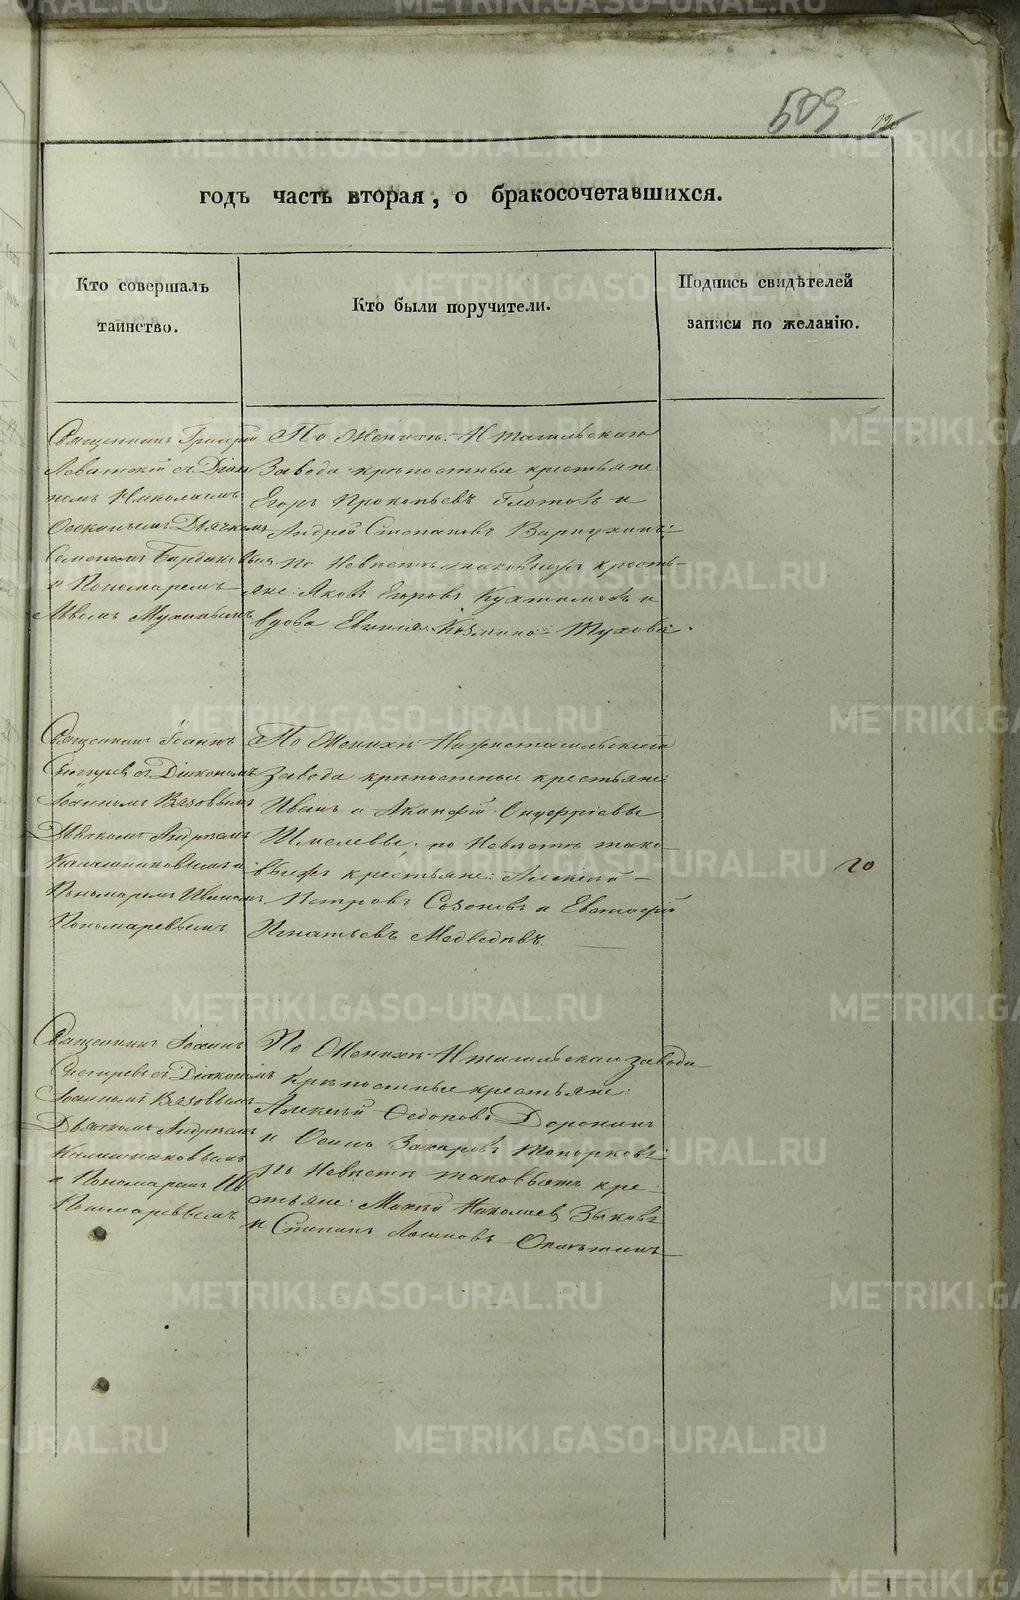 509
годъ часть вторая, о бракосочетавшихся.
Кто совершалъ
таинство.
Кто были поручители.
Подпись свидѣтелей
записи по желанію.
Священникъ Григорій
Левитскій съ Діако
номъ Николаемъ
Дьячкомъ
Семеномъ
и Пономаремъ
По Женихѣ: Нтагильскаго
Завода крѣпостные крестьяне:
Егоръ Прокопьевъ Глотовъ и
Андрей Степановъ Варнухинъ:
по Невѣстѣ таковыежъ кресть-
яне: Яковъ Егоровъ и
вдова Евгенія Козмина
Священникъ Іоаннъ
съ Діакономъ
Іоанномъ Вязовымъ
Дьячкомъ Андреемъ
Калашниковымъ и
Пономаремъ Иваномъ
Пономаревымъ
По Женихѣ Нижнетагильскаго
завода крѣпостные крестьяне:
Иванъ и Акинфій Онуфріевы
Шмелевы; по Невѣстѣ тако-
выежъ крестьяне: Алексѣй
Петровъ Созоновъ и Евстафій
Игнатьевъ Медведевъ.
20
Священникъ Іоаннъ
съ Діакономъ
Іоанномъ Вязовымъ
Дьячкомъ Андреемъ
Калашниковымъ
и Пономаремъ Ив.
Пономаревымъ
По Женихѣ Нтагильскаго завода
крѣпостные крестьяне:
Алексѣй Федотовъ Доронинъ
и Осипъ Захаровъ Топорковъ:
по Невѣстѣ таковыежъ кре-
стьяне: Николаевъ Зыковъ
и Степанъ Логиновъ
METRIKI.GASO-URAL.RU